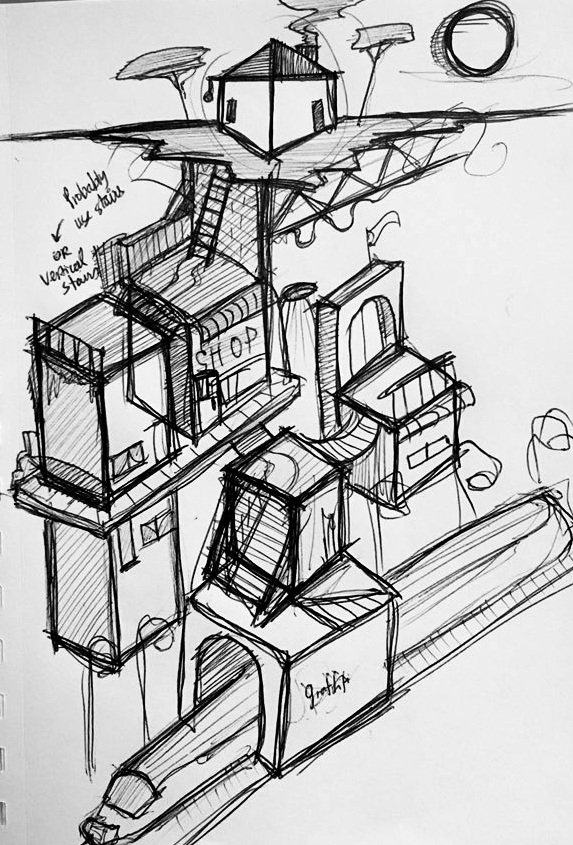 Probably
use stairs
OR
vertical
stairs
SHOP
graffiti